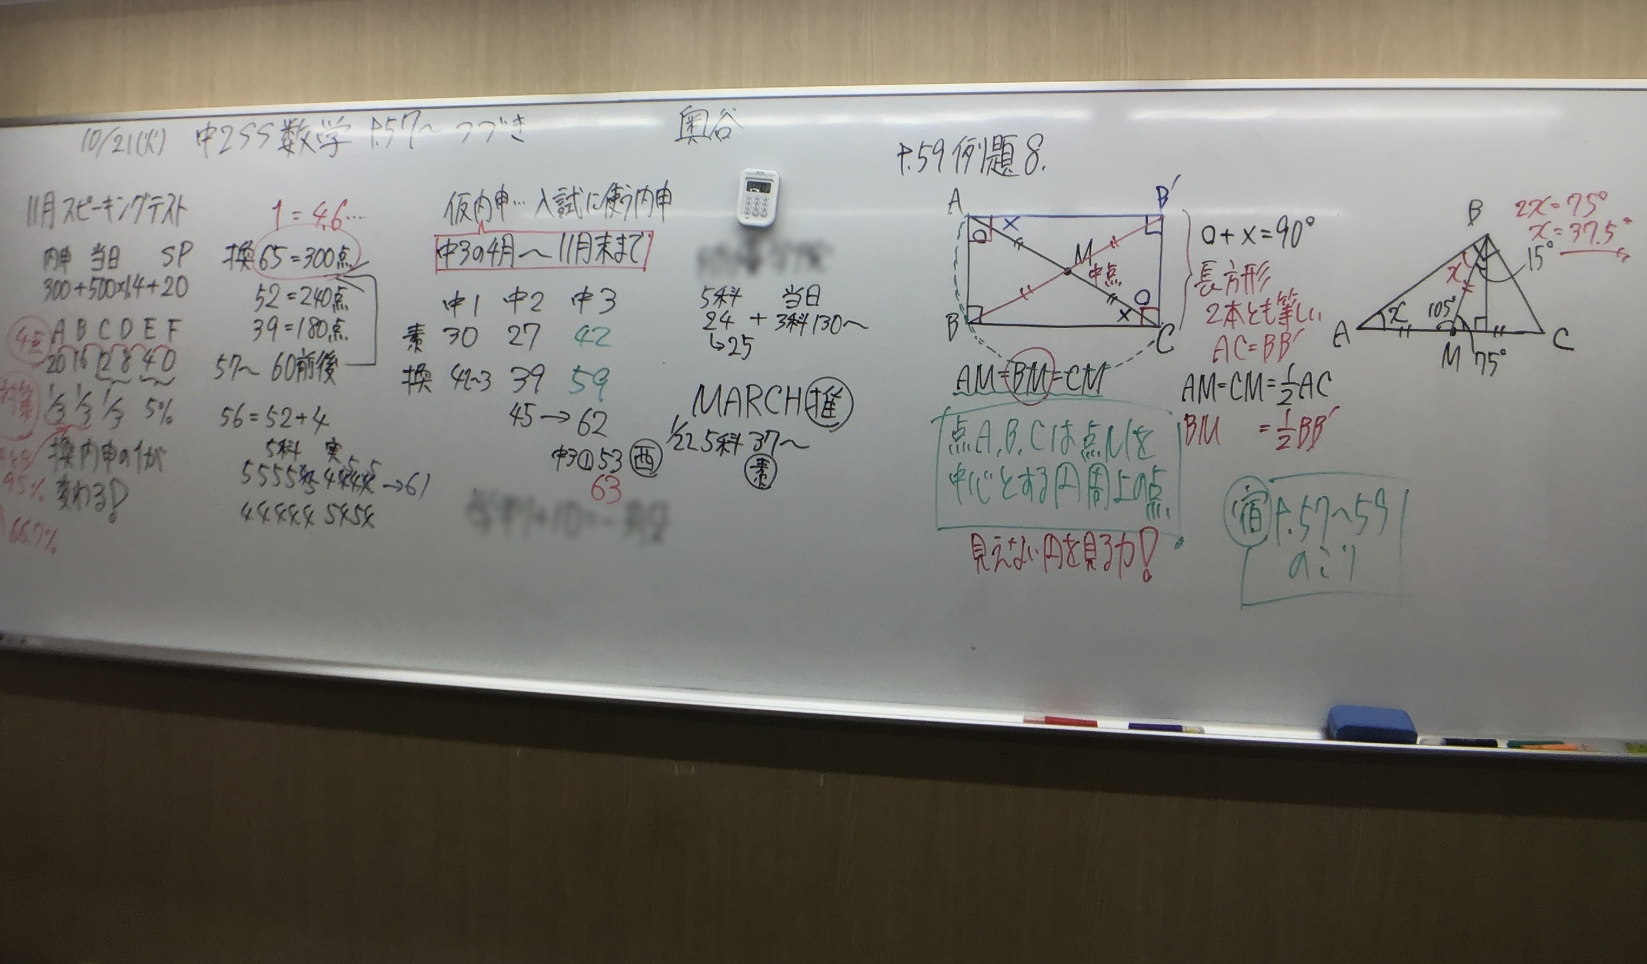 10/21(火) 中2SS数学 P.57〜つづき 奥谷
11月スピーキングテスト
内申 当日 SP
300+500×1.4+20
4点 A B C D E F
20 16 12 8 4 0
1/3 1/3 1/3 5%
換内申の1が
変わる!
95%
66.7%
1=4.6…
換65=300点
52=240点
39=180点
57〜60前後
56=52+4
5科 実
→61
仮内申…入試に使う内申
中3の4月〜11月末まで
中1 中2 中3
素 30 27 42
換 42〜3 39 59
45→62
中3① 53 西
63
5科 当日
24 + 3科130〜
↳25
MARCH 推
1/22 5科 37〜
素
P.59例題8.
A B′
○ ×
M
中点
○
B × C
AM=BM=CM
点A,B,Cは点Mを
中心とする円周上の点.
見えない円を見る力!
○+×=90°
長方形
2本とも等しい
AC=BB′
AM=CM=1/2AC
BM =1/2BB′
B
2x=75°
x=37.5°
15°
x
x 105°
A M 75° C
宿 P.57〜59
のこり